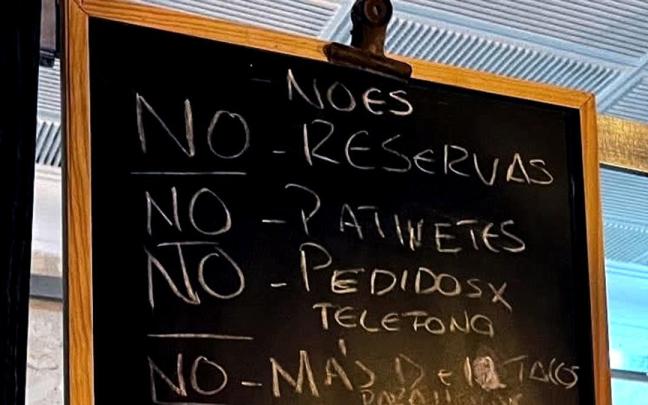 - NOES
NO - RESERVAS
NO - PATINETES
NO - PEDIDOS X
TELEFONO
NO - MÁS DE TACOS